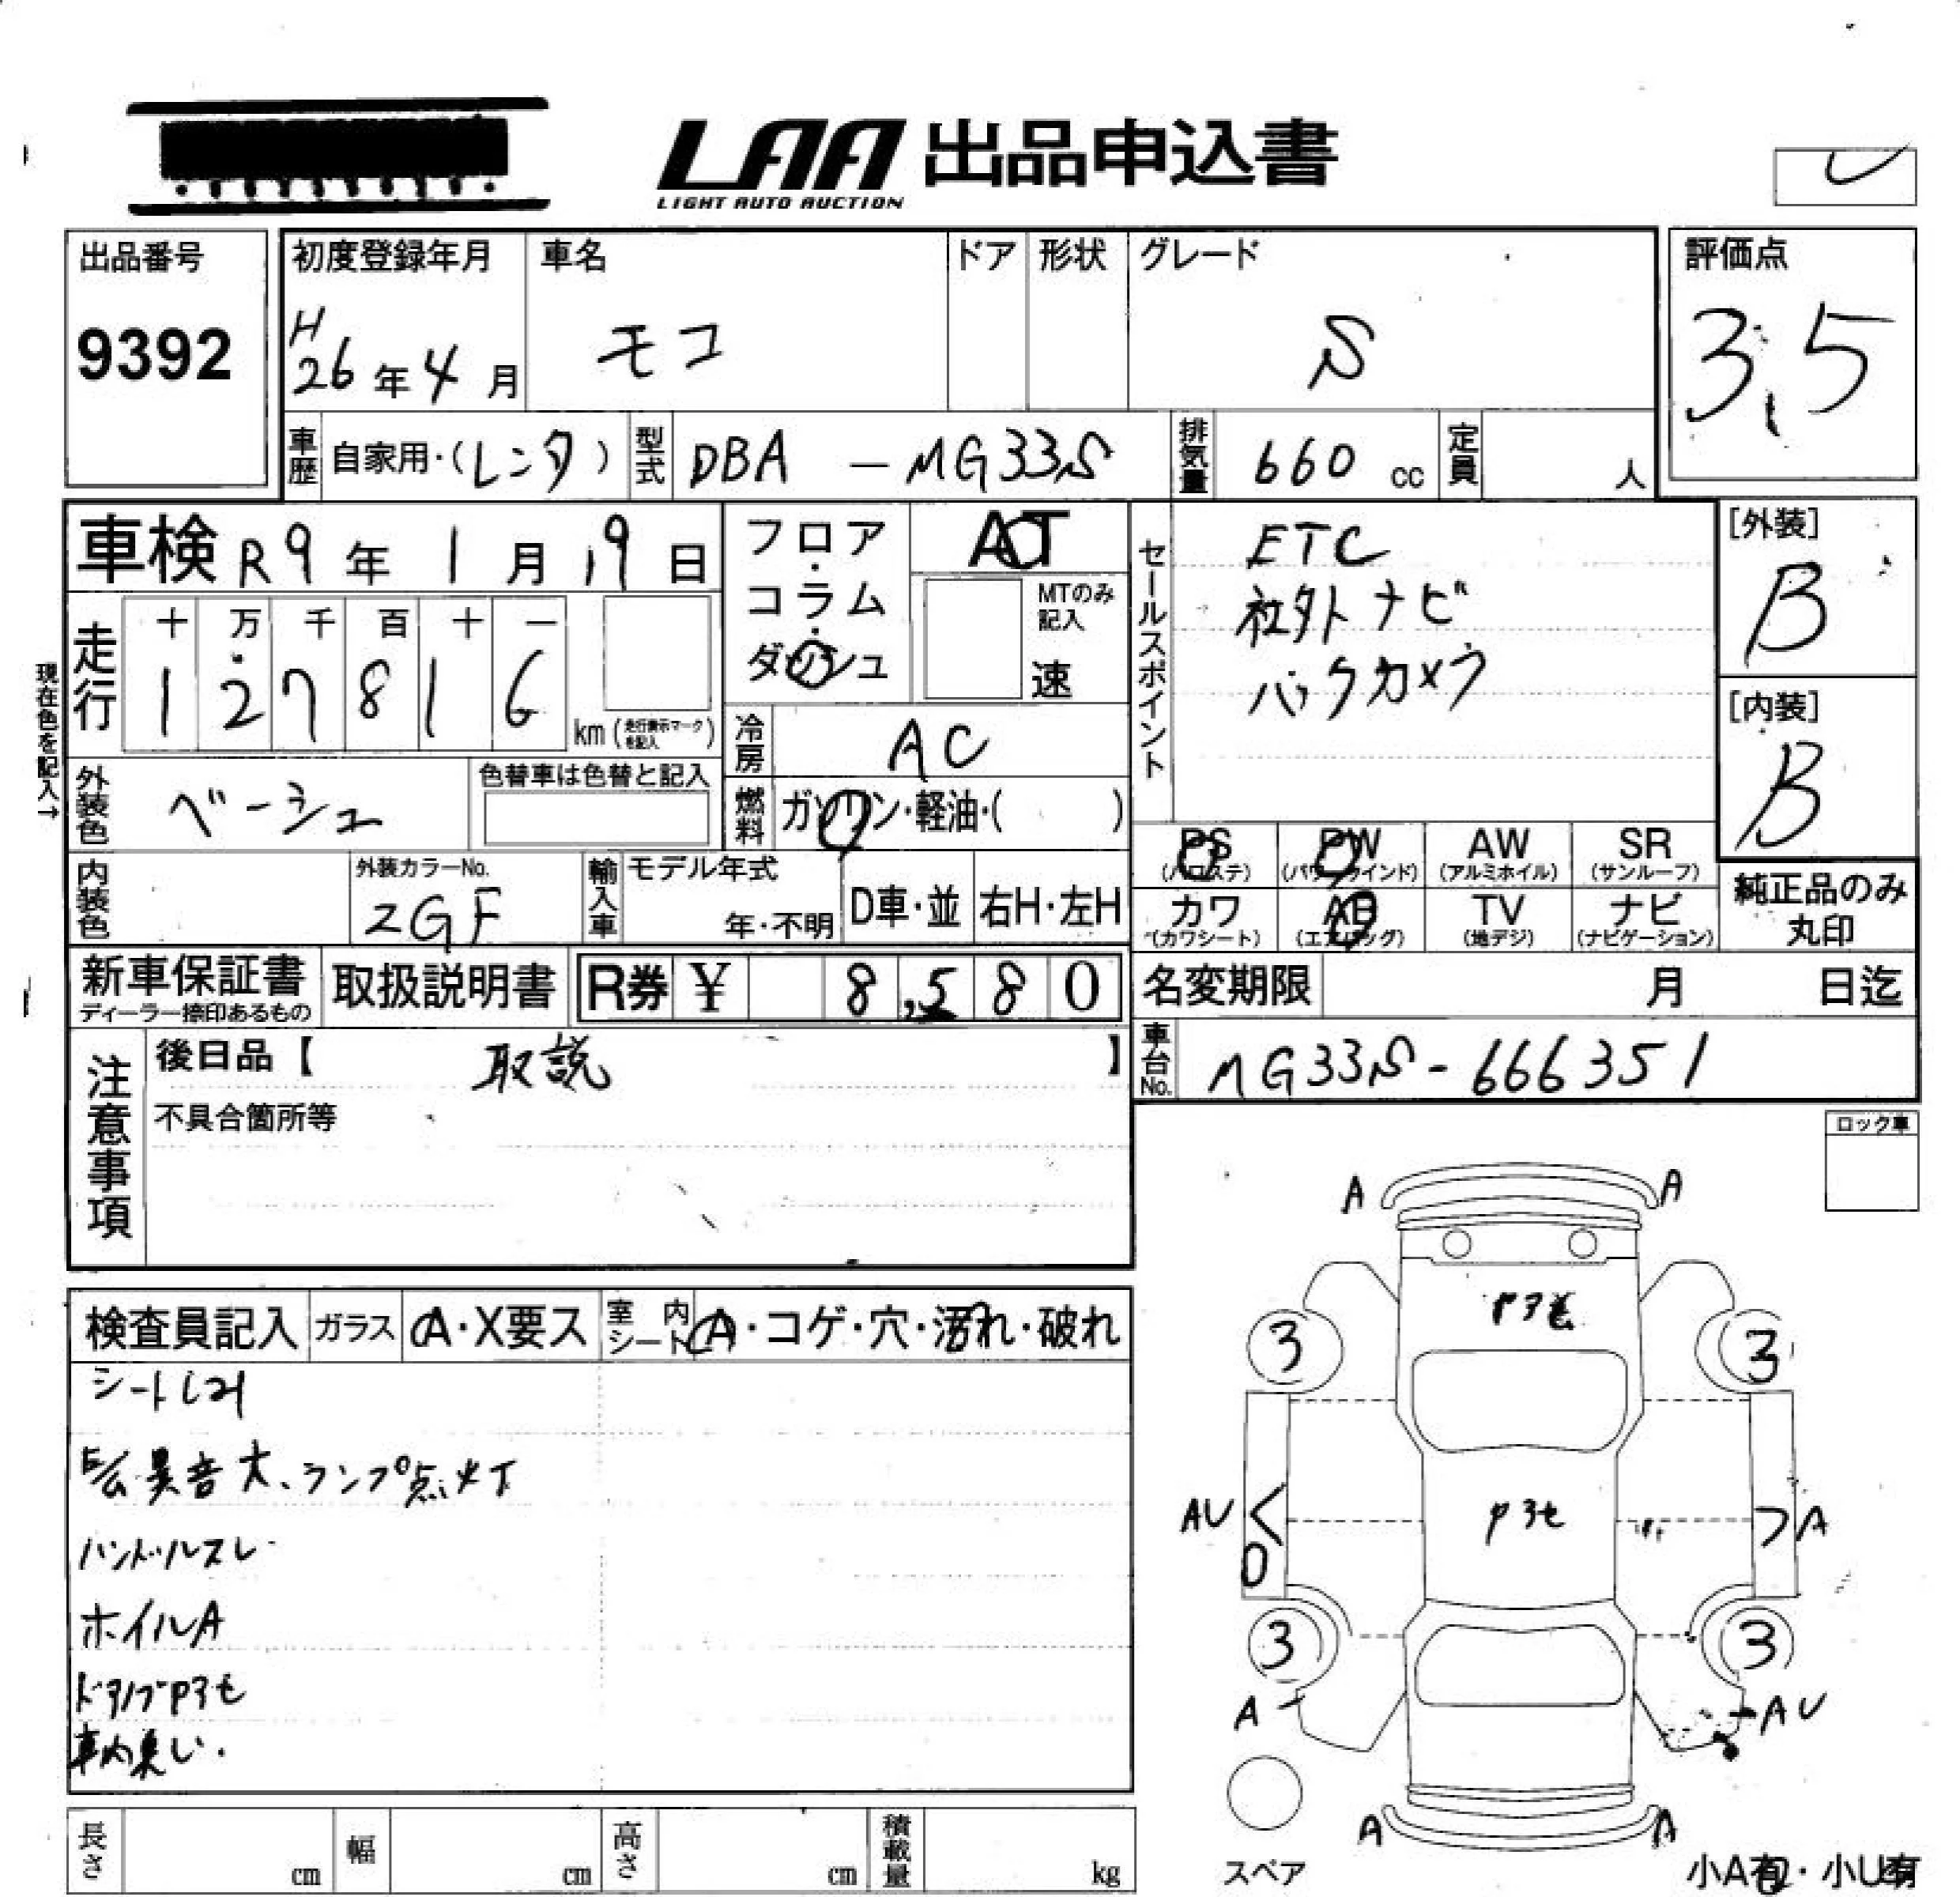 LAA 出品申込書
LIGHT AUTO AUCTION
出品番号
9392
初度登録年月
H
26年4月
車名
モコ
ドア
形状
グレード
S
評価点
3.5
車歴
自家用・(レンタ)
型式
DBA - MG33S
排気量
660 cc
定員
人
車検 R9年1月19日
フロア・コラム・ダッシュ
AT
MTのみ記入
速
セールスポイント
ETC
社外ナビ
バックカメラ
[外装]
B
[内装]
B
現在色を記入→
走行
十 万 千 百 十 一
1 2 7 8 1 6
km (走行表示マークを記入)
冷房
AC
外装色
ベーシュ
色替車は色替と記入
燃料
ガソリン・軽油・( )
PS (パワステ)
PW (パワーウインド)
AW (アルミホイル)
SR (サンルーフ)
内装色
外装カラーNo.
ZGF
輸入車
モデル年式
年・不明
D車・並
右H・左H
カワ (カワシート)
AB (エアバッグ)
TV (地デジ)
ナビ (ナビゲーション)
純正品のみ丸印
新車保証書
ディーラー捺印あるもの
取扱説明書
R券 ¥ 8,580
名変期限
月 日迄
注意事項
後日品【 取説 】
車台No.
MG33S-666351
不具合箇所等
ロック車
検査員記入
ガラス
A・X要ス
室内シート
A・コゲ・穴・汚れ・破れ
シートシミ
異音大、ランプ点灯
ハンドルスレ
ホイルA
車内臭い.
A
A
3
3
AU
A
3
3
A
AU
A
A
スペア
小A有・小U有
長さ
cm
幅
cm
高さ
cm
積載量
kg